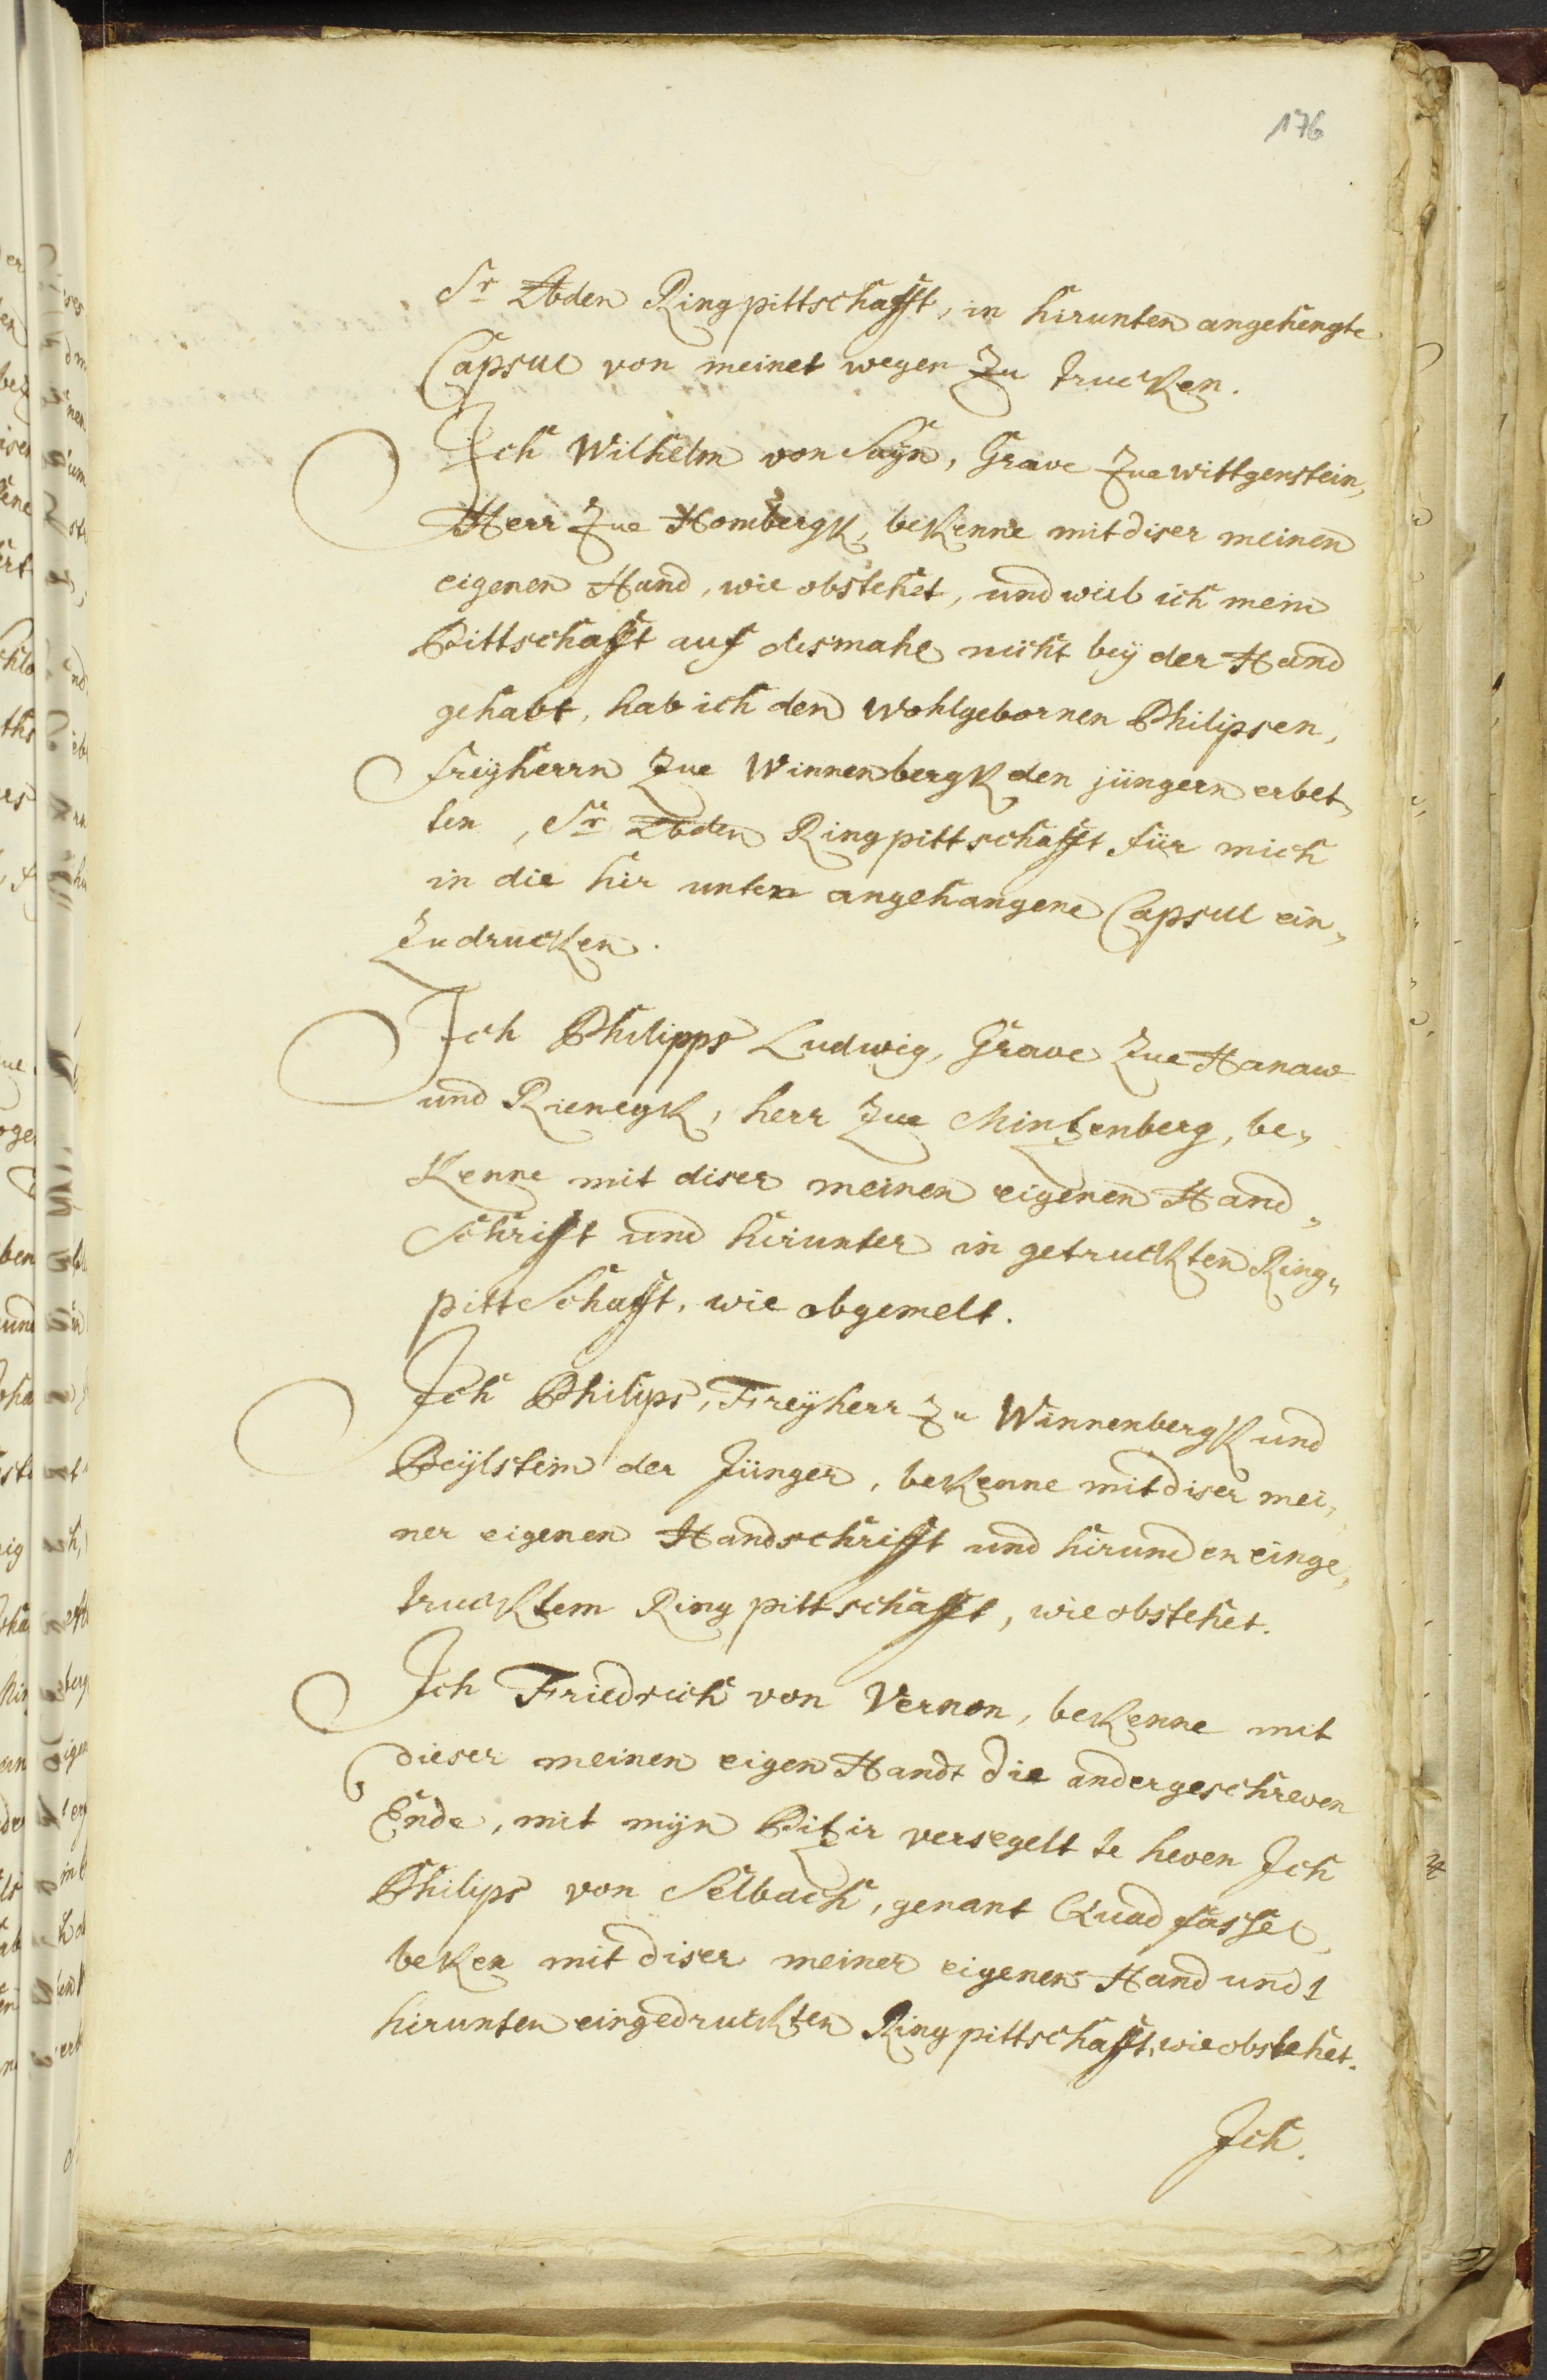 176
Sr Lbden Ringpittschafft, in hirunten angehengte
Capsul von meinet wegen zu trucken.
Ich Wilhelm von Sayn, Grave zue Wittgenstein,
Herr zue Hombergk, bekenne mit diser meinen
eigenen Hand, wie obstehet, und weil ich mein
Pittschafft auf dismahl nicht beÿ der Hand
gehabt, hab ich den wohlgebornen Philipsen,
freÿherrn zue Winnenbergk den jüngern erbet„
ten, Sr Lbden Ringpittschafft für mich
in die hir unten angehangene Capsul ein„
zudrucken.
Ich Philipps Ludwig, Grave zue Hanaw
und Rienegk, herr zue Mintzenberg, be„
kenne mit diser meinen eigenen Hand„
Schrifft und hirunter in getruckten Ring„
pittschafft, wie obgemelt.
Ich Philips, Freÿherr zu Winnenbergk und
Beÿlstein der Jünger, bekenne mit diser mei„
ner eigenen Handschrifft und hirunden einge„
trucktem Ringpittschafft, wie obstehet.
Ich Friedrich von Vernon, bekenne mit
dieser meinen eigen Handt die andergeschreven
Ende, mit mÿn Pitzir versegelt te heven Ich
Philips von Selbach, genant Quadfassel,
beken mit diser meiner eigenen Hand und
hirunten eingedruckten Ringpittschafft, wie obstehet.
Ich.